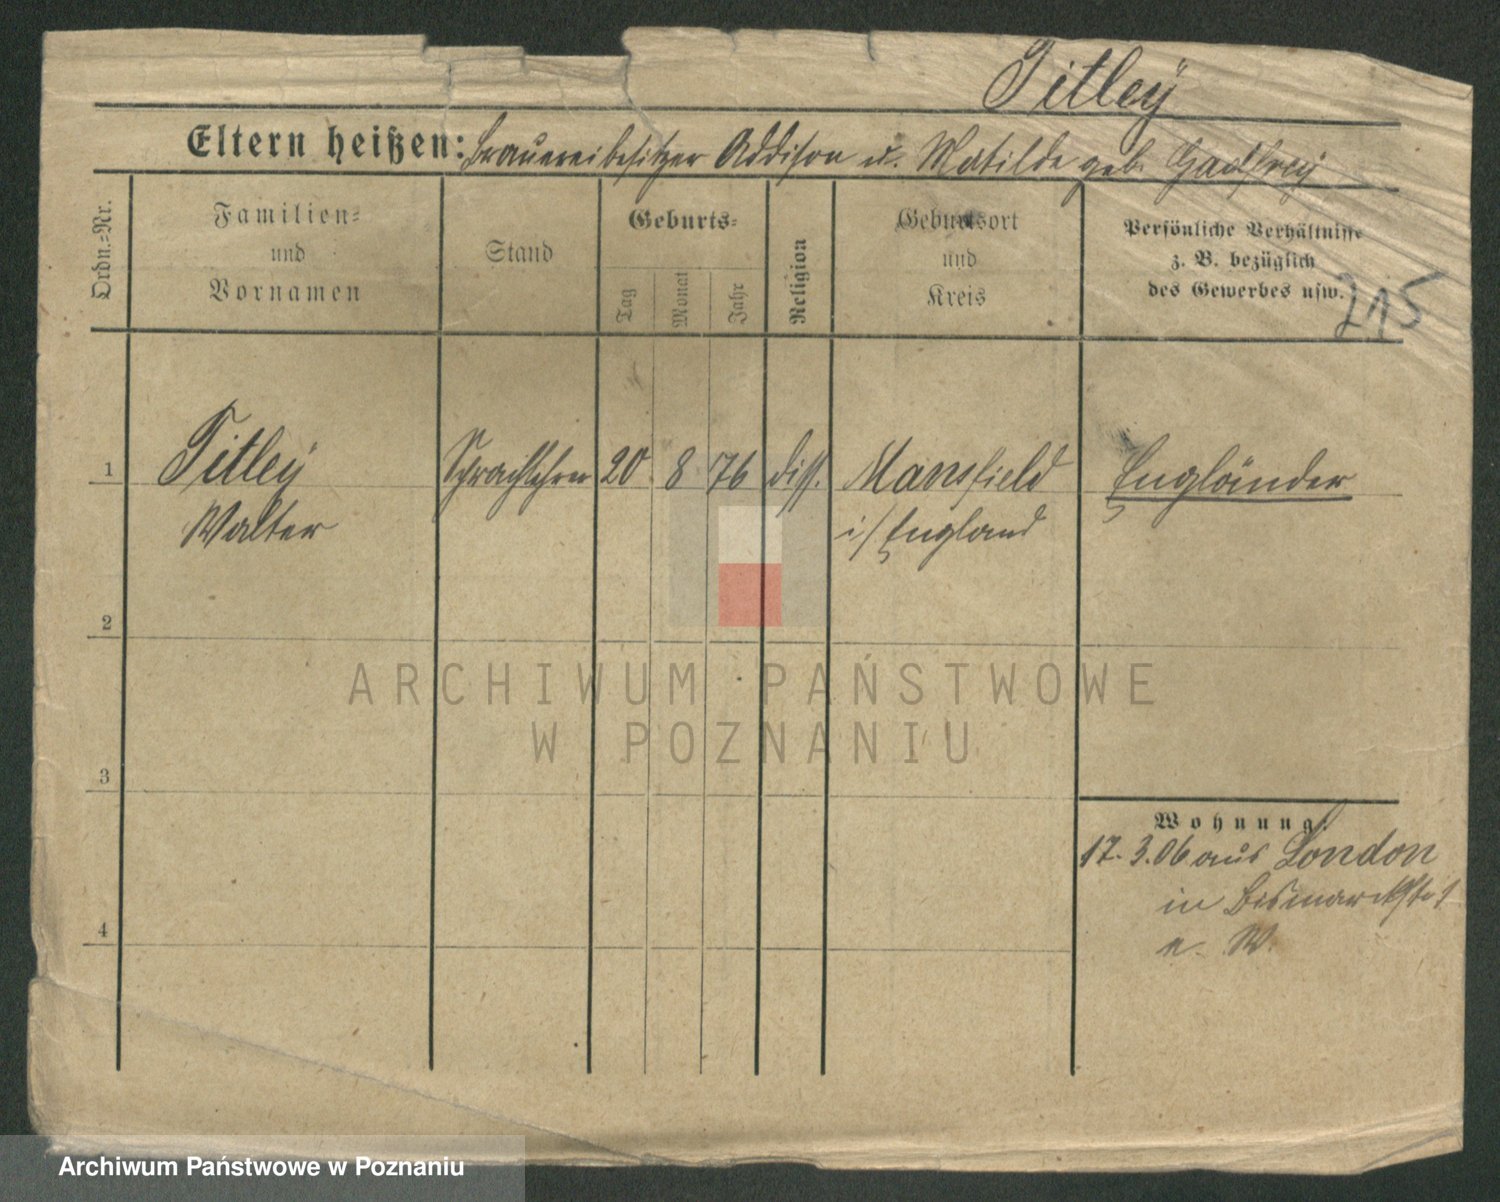 Titleÿ
Eltern heißen: Brauereibesitzer Addison u. Matilde geb. Gadfreÿ
Ordn.=Nr.
Familien=
und
Vornamen
Stand
Geburts=
Tag
Monat
Jahr
Religion
Geburtsort
und
Kreis
Persönliche Verhältnisse
z. B. bezüglich
des Gewerbes usw.
215
1
Titleÿ
Walter
Sprachlehrer
20
8
76
diss.
Mansfield
i/England
Engländer
2
3
4
Wohnung:
17.3.06 aus London
in Bismarckstr 1
ARCHIWUM PAŃSTWOWE
W POZNANIU
Archiwum Państwowe w Poznaniu